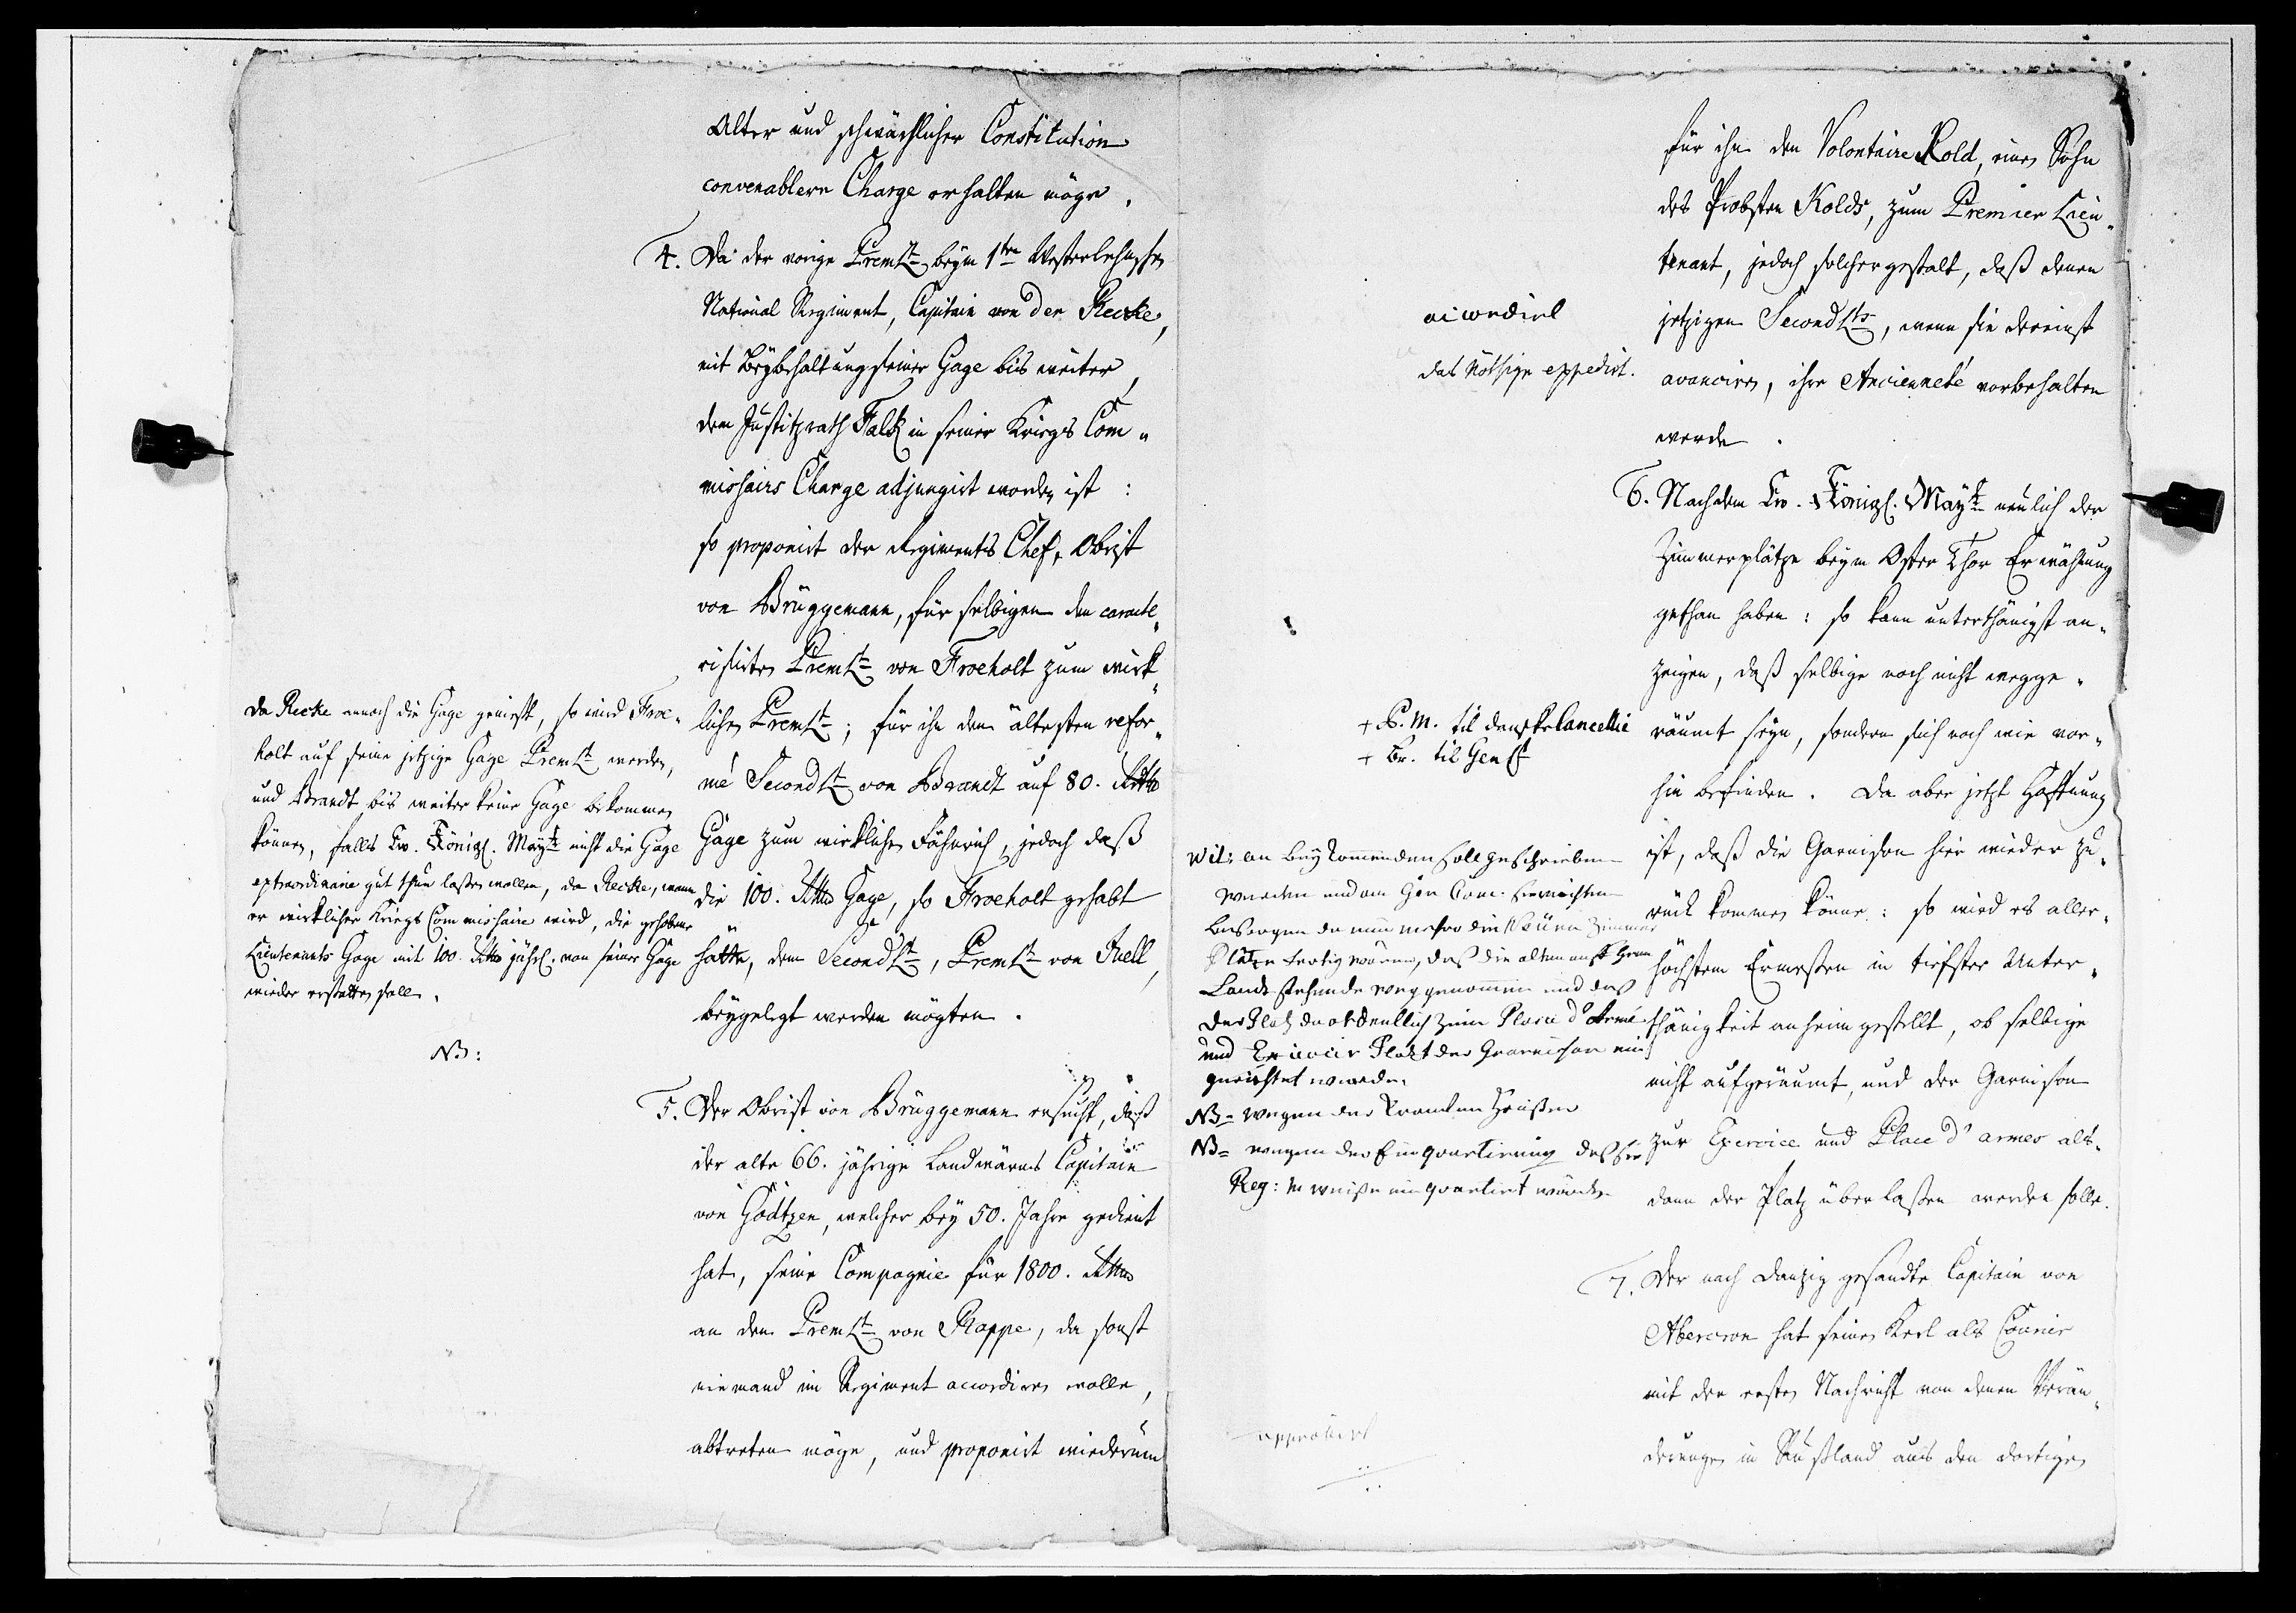 Alter und schwächlicher Constitution
convenablere Charge erhalten möge.
4. Da der vorige PremLt beym 1ten Westerlehnschen
National Regiment, Capitain von der Recke,
mit Beybehaltung seiner Gage bis weiter,
dem Justitzrath Falck in seiner Kriegs Com„
missairs Charge adjungirt worden ist:
so proponirt der Regiments Chef, Obrist
von Brüggemann, für selbigen den caracte„
risirten PremLt von Froeholt zum wirk„
lichen PremLt; für ihn den ältesten refor„
mé SecondLt von Brandt auf 80. Rthlr
Gage zum wirklichen Fähnrich, jedoch daß
die 100. Rthlr Gage, so Froeholt gehabt
hätte, dem SecondLt, PremLt von Juell,
beygelegt werden mögten.
Da Recke annoch die Gage genießt, so wird Froe„
holt auf seine jetzige Gage PremLt werden,
und Brandt bis weiter keine Gage bekommen
können, falls Ew. Königl. Mayt nicht die Gage
extraordinaire gut thun laßen wollen, da Recke, wenn
er wirklicher Kriegs Commissaire wird, die gehobene
Lieutenants Gage mit 100. Rthlr jährl. von seiner Gage
wieder erstatten soll.
NB:
5. Der Obrist von Brüggemann ersucht, daß
der alte 66. jährige Landwärns Capitain
von Gödtzen, welcher bey 50. Jahre gedient
hat, seine Compagnie für 1800. Rthlr
an den PremLt von Rappe, da sonst
niemand im Regiment accordiren wolle,
abtreten möge, und proponirt wiederum
für ihn den Volontaire Kold, einen Sohn
des Probsten Kolds, zum Premier Lieu„
tenant, jedoch solchergestalt, daß denen
jetzigen SecondLts, wenn sie dereinst
avanciren, ihre Ancienneté vorbehalten
werde.
accordirt
das Nöthige expedirt.
6. Nachdem Ew. Königl. Mayt neulich der
Zimmerplätze beym Oster Thor Erwähnung
gethan haben: so kann unterthänigst an„
zeigen, daß selbige noch nicht wegge„
räumt seyn, sondern sich noch wie vor„
hin befinden. Da aber jetzt Hoffnung
ist, daß die Garnison hier wieder zu„
rück kommen könne: so wird es aller„
höchstem Ermeßen in tiefster Unter„
thänigkeit anheim gestellt, ob selbige
nicht aufgeräumt, und der Garnison
zur Exercice und Place d'armes als„
dann der Platz überlaßen werden solle.
+ P. M. til danske Cancellie
+ Br. til Gen Lt
Wil: an beykommenden soll geschrieben
werden und am Gen Com.
besorgen da nunmehro die Neuen Zimmer
Plätze fertig wären, daß die alten
Lande stehende weggenommen und daß
der Platz da ordentlich zum Place d'Armé
und Exercir Platz der Guarnison ein
gerichtet werde.
NB= wegen der Krancken Häußer
NB= wegen der Einquartirung daß
Reg: weise einquartirt würde
7. Der nach Danzig gesandte Capitain von
Abercron hat seinen Kerl als Courier
mit der ersten Nachricht von denen Verän„
derungen in Rußland aus den dortigen
approbirt